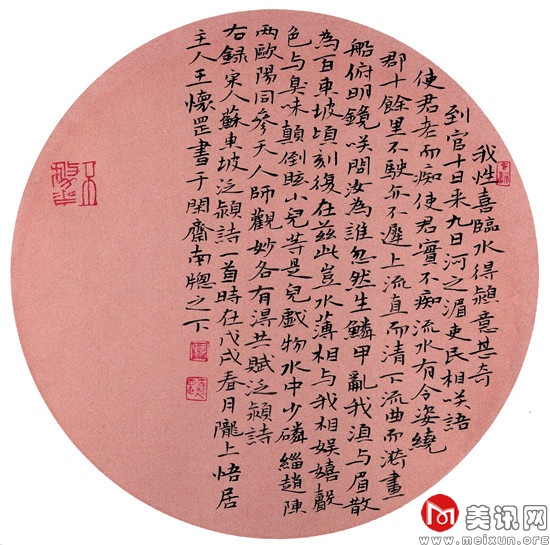 我性喜臨水得潁意甚奇
到官十日来九日河之湄吏民相咲語
使君老而痴使君實不痴流水有令姿繞
郡十餘里不駛亦不遲上流直而清下流曲而漪畫
船俯明鏡咲問汝為誰忽然生鱗甲亂我湏与眉散
為百東坡頃刻復在茲此豈水薄相与我相娛嬉聲
色与臭味顛倒眩小兒等是兒戲物水中少磷緇趙陳
兩歐陽同參天人師觀妙各有得共賦泛潁詩
右録宋人蘇東坡泛潁詩一首時在戊戌春月隴上悟居
主人王懷罡書于閑齋南牕之下
美讯网
www.meixun.org